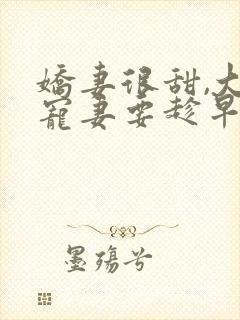 嬌妻很甜,大
寵妻要趁早
墨殤兮